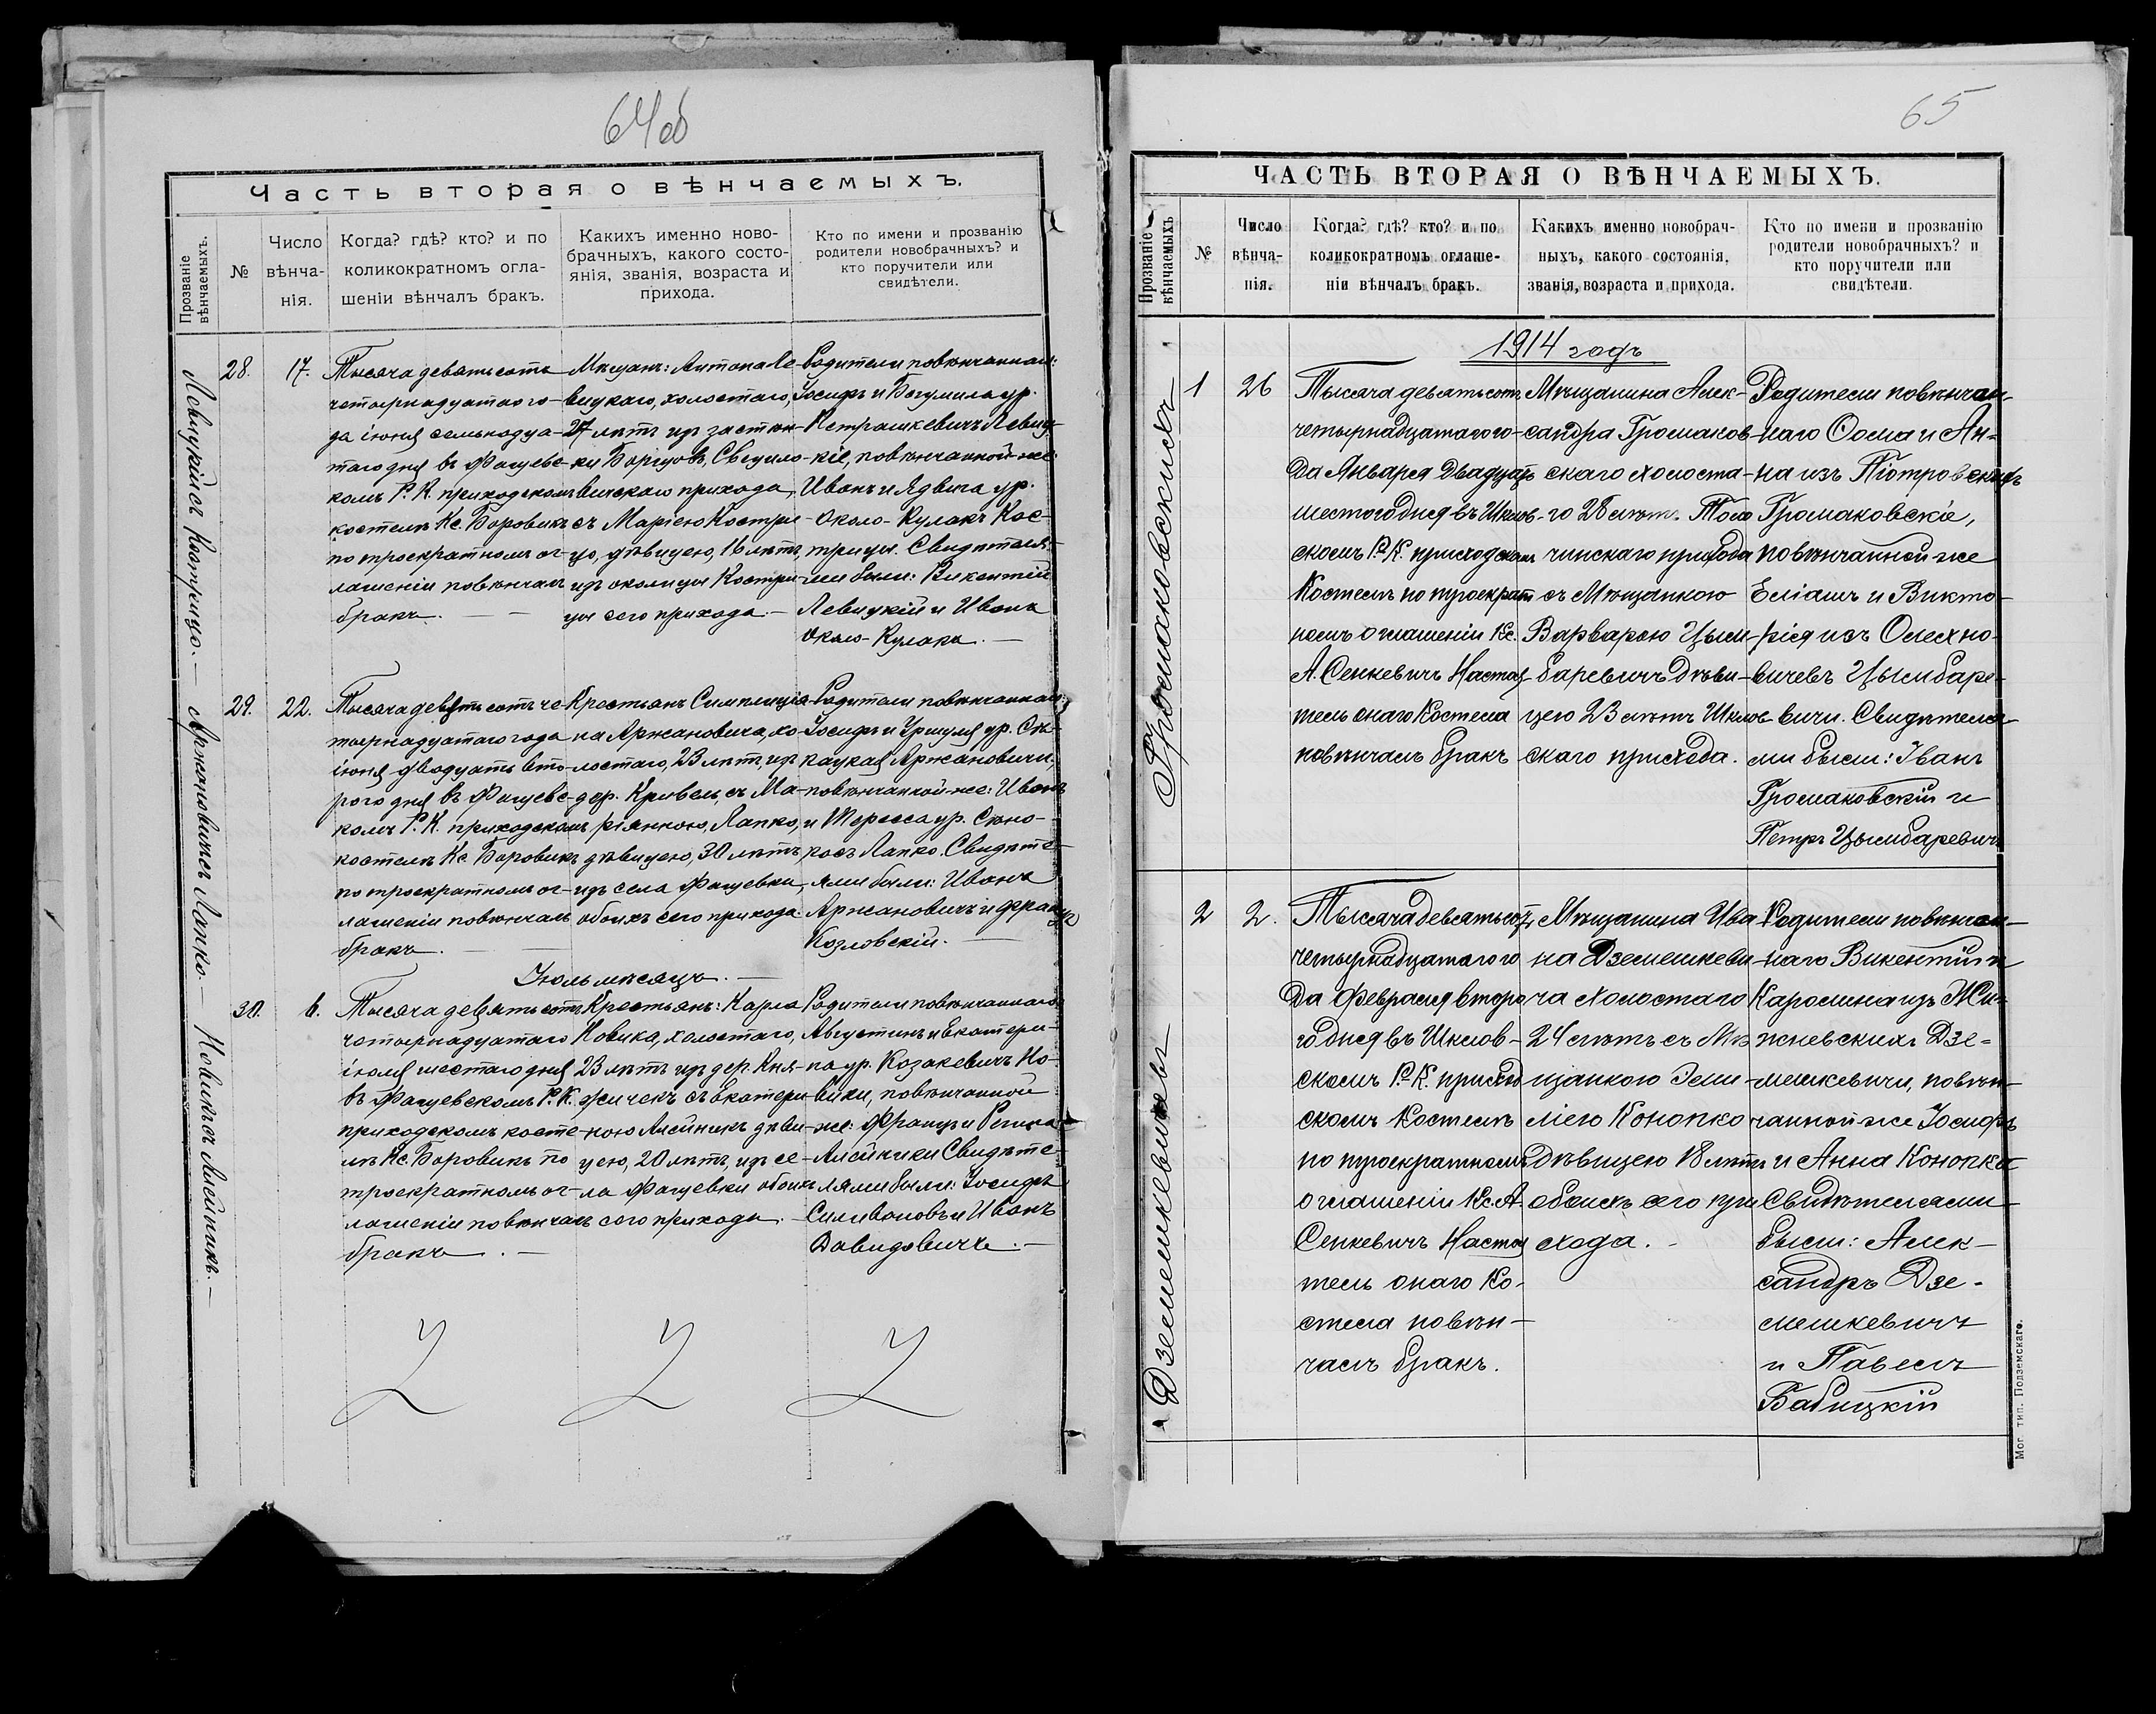 64об
Часть вторая о вѣнчаемыхъ.
Прозваніе вѣнчаемыхъ.
№
Число вѣнча- нія.
Когда? гдѣ? кто? и по
коликократномъ огла-
шеніи вѣнчалъ бракъ.
Какихъ именно ново-
брачныхъ, какого состо-
янія, званія, возраста и
прихода.
Кто по имени и прозванію
родители новобрачныхъ? и
кто поручители или
свидѣтели.
28.
17.
Тысяча девятьсотъ
четырнадцатаго го-
да іюня семьнадца-
таго дня въ Фащевс-
комъ Р. К. приходскомъ
костелѣ Кс. Боровикъ
по троекратномъ ог-
лашеніи повѣнчалъ
бракъ.
Мѣщанъ: Антона Ле-
вицкаго, холостаго,
27 лѣтъ изъ застѣн-
ки Борщовъ, Свецило-
вичскаго прихода,
съ Маріею Костри-
цо, дѣвицею, 16 лѣтъ,
изъ околицы Костри-
цы сего прихода.
Родители повѣнчаннаго:
Іосифъ и Богумила ур.
Петрашкевичъ Левиц-
кіе, повѣнчанной-же:
Иванъ и Ядвига ур.
Около-Кулакъ Кос-
трицы. Свидѣтеля-
ми были: Викентій
Левицкій и Иванъ
Около-Кулакъ.
29.
22.
Тысяча девятьсотъ че-
тырнадцатаго года
іюня двадцать вто-
рого дня въ Фащевс-
комъ Р. К. приходскомъ
костелѣ Кс. Боровикъ
по троекратномъ ог-
лашеніи повѣнчалъ
бракъ.
Крестьянъ Симплиція-
на Аржановича, хо-
лостаго, 23 лѣтъ, изъ
дер. Кривель, съ Ма-
ріянною, Лапко,
дѣвицею, 30 лѣтъ,
изъ села Фащевки,
обоихъ сего прихода.
Родители повѣнчаннаго:
Іосифъ и Уршуля ур.
Аржановичи,
повѣнчанной-же: Иванъ
и Тересса ур. Сѣно-
косъ Лапко. Свидѣте-
лями были: Иванъ
Аржановичъ и Францъ
Козловскій.
Іюль мѣсяцъ.
30.
6.
Тысяча девятьсотъ
четырнадцатаго
іюля шестаго дня
въ Фащевскомъ Р. К.
приходскомъ косте-
лѣ Кс. Боровикъ по
троекратномъ ог-
лашеніи повѣнчалъ
бракъ.
Крестьянъ: Карла
Новика, холостаго,
23 лѣтъ изъ дер. Кня-
жичекъ съ Екатери-
ною Алейникъ дѣви-
цею, 20 лѣтъ, изъ се-
ла Фащевки обоихъ
сего прихода.
Родители повѣнчаннаго:
Августинъ и Екатери-
на ур. Козакевичъ Но-
вики, повѣнчанной
же: Францъ и Регина
Алейники Свидѣте-
лями были: Іосифъ
Силивоновъ и Иванъ
Давидовичъ.
Левицкій съ Кострицо. — Аржановичъ съ Лапко. — Новикъ съ Алейникъ. —
65
ЧАСТЬ ВТОРАЯ О ВѢНЧАЕМЫХЪ.
Прозваніе вѣнчаемыхъ
№
Число вѣнча- нія.
Когда? гдѣ? кто? и по
коликократномъ оглаше-
ніи вѣнчалъ бракъ.
Какихъ именно новобрач-
ныхъ, какого состоянія,
званія, возраста и прихода.
Кто по имени и прозванію
родители новобрачныхъ? и
кто поручители или
свидѣтели.
1914 годъ
1
26
Тысяча девятьсотъ
четырнадцатого го-
да Января двадцать
шестого дня въ Шклов-
скомъ Р.-К. приходскомъ
Костелѣ по троекрат
номъ оглашеніи Кс.
А. Сенкевичъ Настоя-
тель онаго Костела
повѣнчалъ бракъ
Мѣщанина Алек-
сандра Громаков-
скаго холоста-
го 28 лѣтъ. Толо
чинскаго прихода
съ Мѣщанкою
Варварою Цым-
баревичъ дѣви-
цею 23 лѣтъ Шклов
скаго прихода.
Родители повѣнчан-
наго Ѳома и Ан-
на изъ Піотровскихъ
Громаковскіе,
повѣнчанной же
Еліашъ и Викто-
рія изъ Олехно-
вичевъ Цымбаре-
вичи. Свидѣтеля-
ми были: Іванъ
Громаковскій и
Петръ Цымбаревичъ
Громаковскихъ
2
2.
Тысяча девятьсотъ
четырнадцатаго го
да Февраля второ
го дня въ Шклов-
скомъ Р.-К. приход
скомъ Костелѣ
по троекратномъ
оглашеніи Кс. А.
Сенкевичъ Настоя
тель онаго Ко-
стела повѣн-
чалъ бракъ.
Мѣщанина Ива
на Дземешкеви-
ча холостаго
24 лѣтъ съ Мѣ
щанкою Эми-
ліею Конопко
дѣвицею 18 лѣтъ
обоихъ сего при
хода.
Родители повѣнчан-
наго Викентій и
Каролина изъ Жи-
жневскихъ Дзе-
мешкевичи, повѣн-
чанной же Іосифъ
и Анна Конопка
Свидѣтелями
были: Алек-
сандръ Дзе-
мешкевичъ
и Павелъ
Бабицкій
Дземешкевичъ
Мог. тип. Подземскаго.